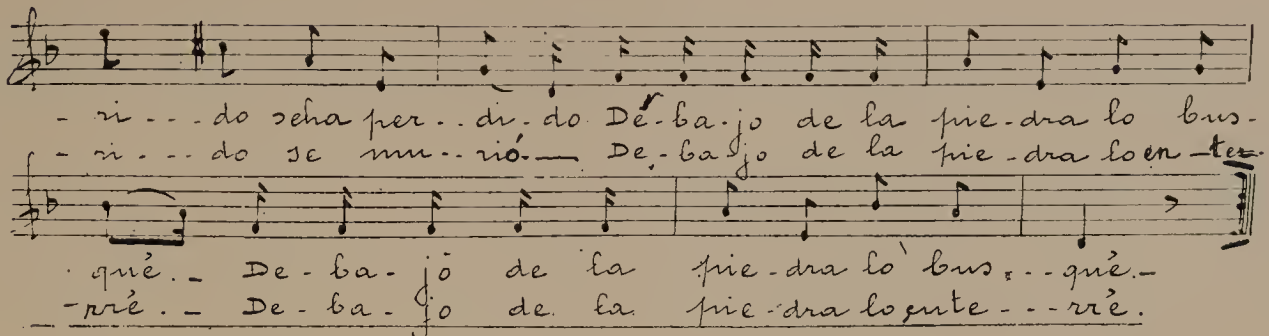 - ri - - - do seha per - - di - do De - ba - jo de la pie - dra lo bus -
- ri - - - do se mu - - rió. — De - ba - jo de la pie - dra loen - te -
qué. - De - ba - jo de la pie - dra lo bus - - - qué. -
- rré. - De - ba - jo de la pie - dra loente - - - rré.